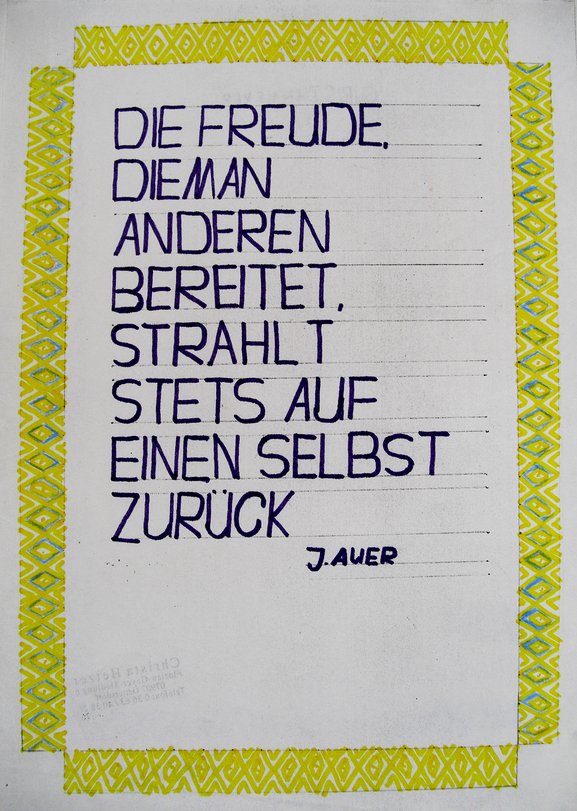 DIE FREUDE,
DIE MAN
ANDEREN
BEREITET,
STRAHLT
STETS AUF
EINEN SELBST
ZURÜCK
J. AUER
Christa Hetzer